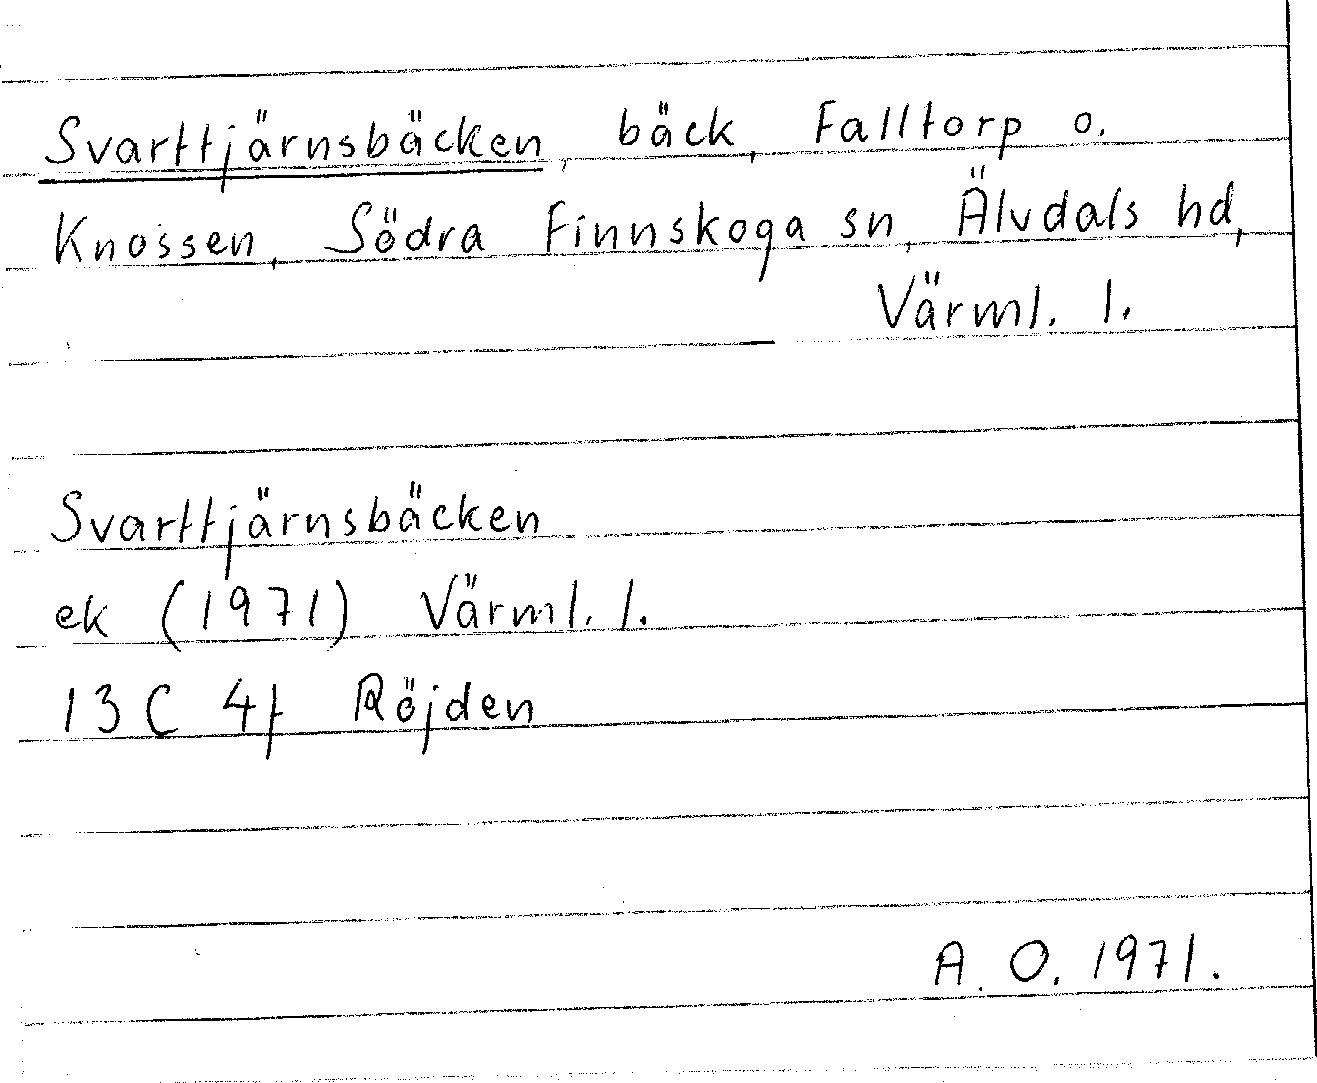 Svarttjärnsbäcken, bäck, Falltorp o.
Knossen, Södra Finnskoga sn, Älvdals hd,
Värml. l.
Svarttjärnsbäcken
ek (1971) Värml. l.
13 C 4f Röjden
A. O. 1971.